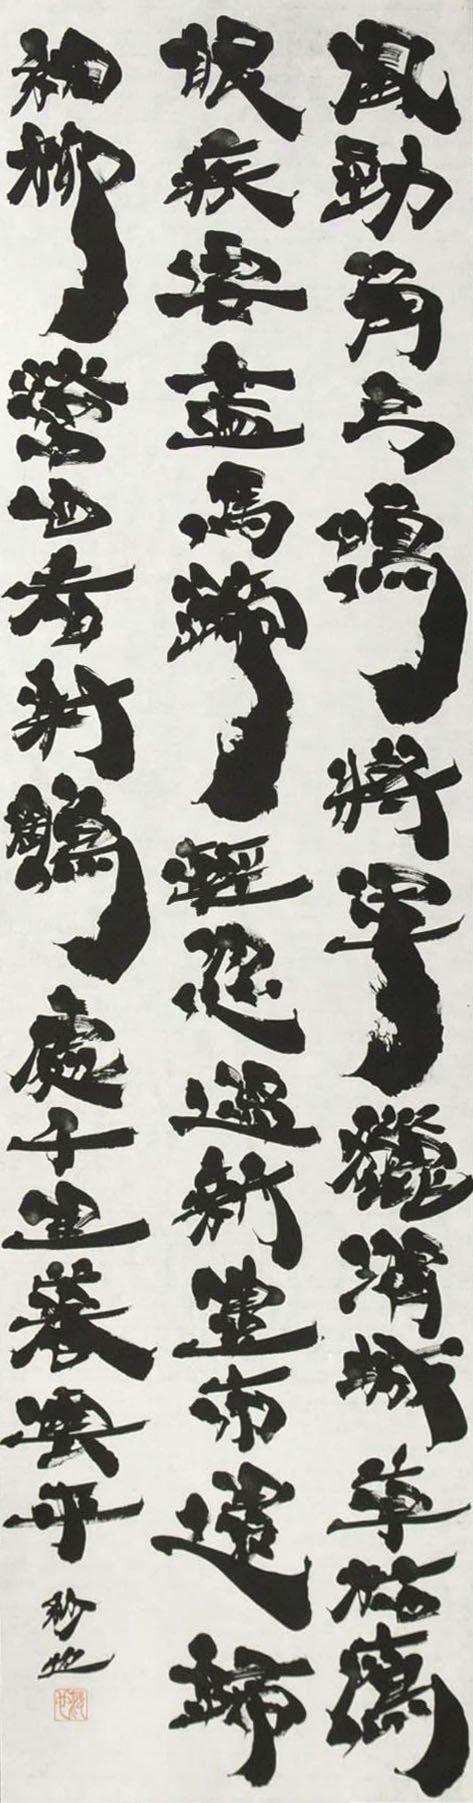 風勁角弓鳴將軍獵渭城草枯鷹
眼疾雪盡馬蹄輕忽過新豐市還歸
細柳營回看射鵰處千里暮雲平